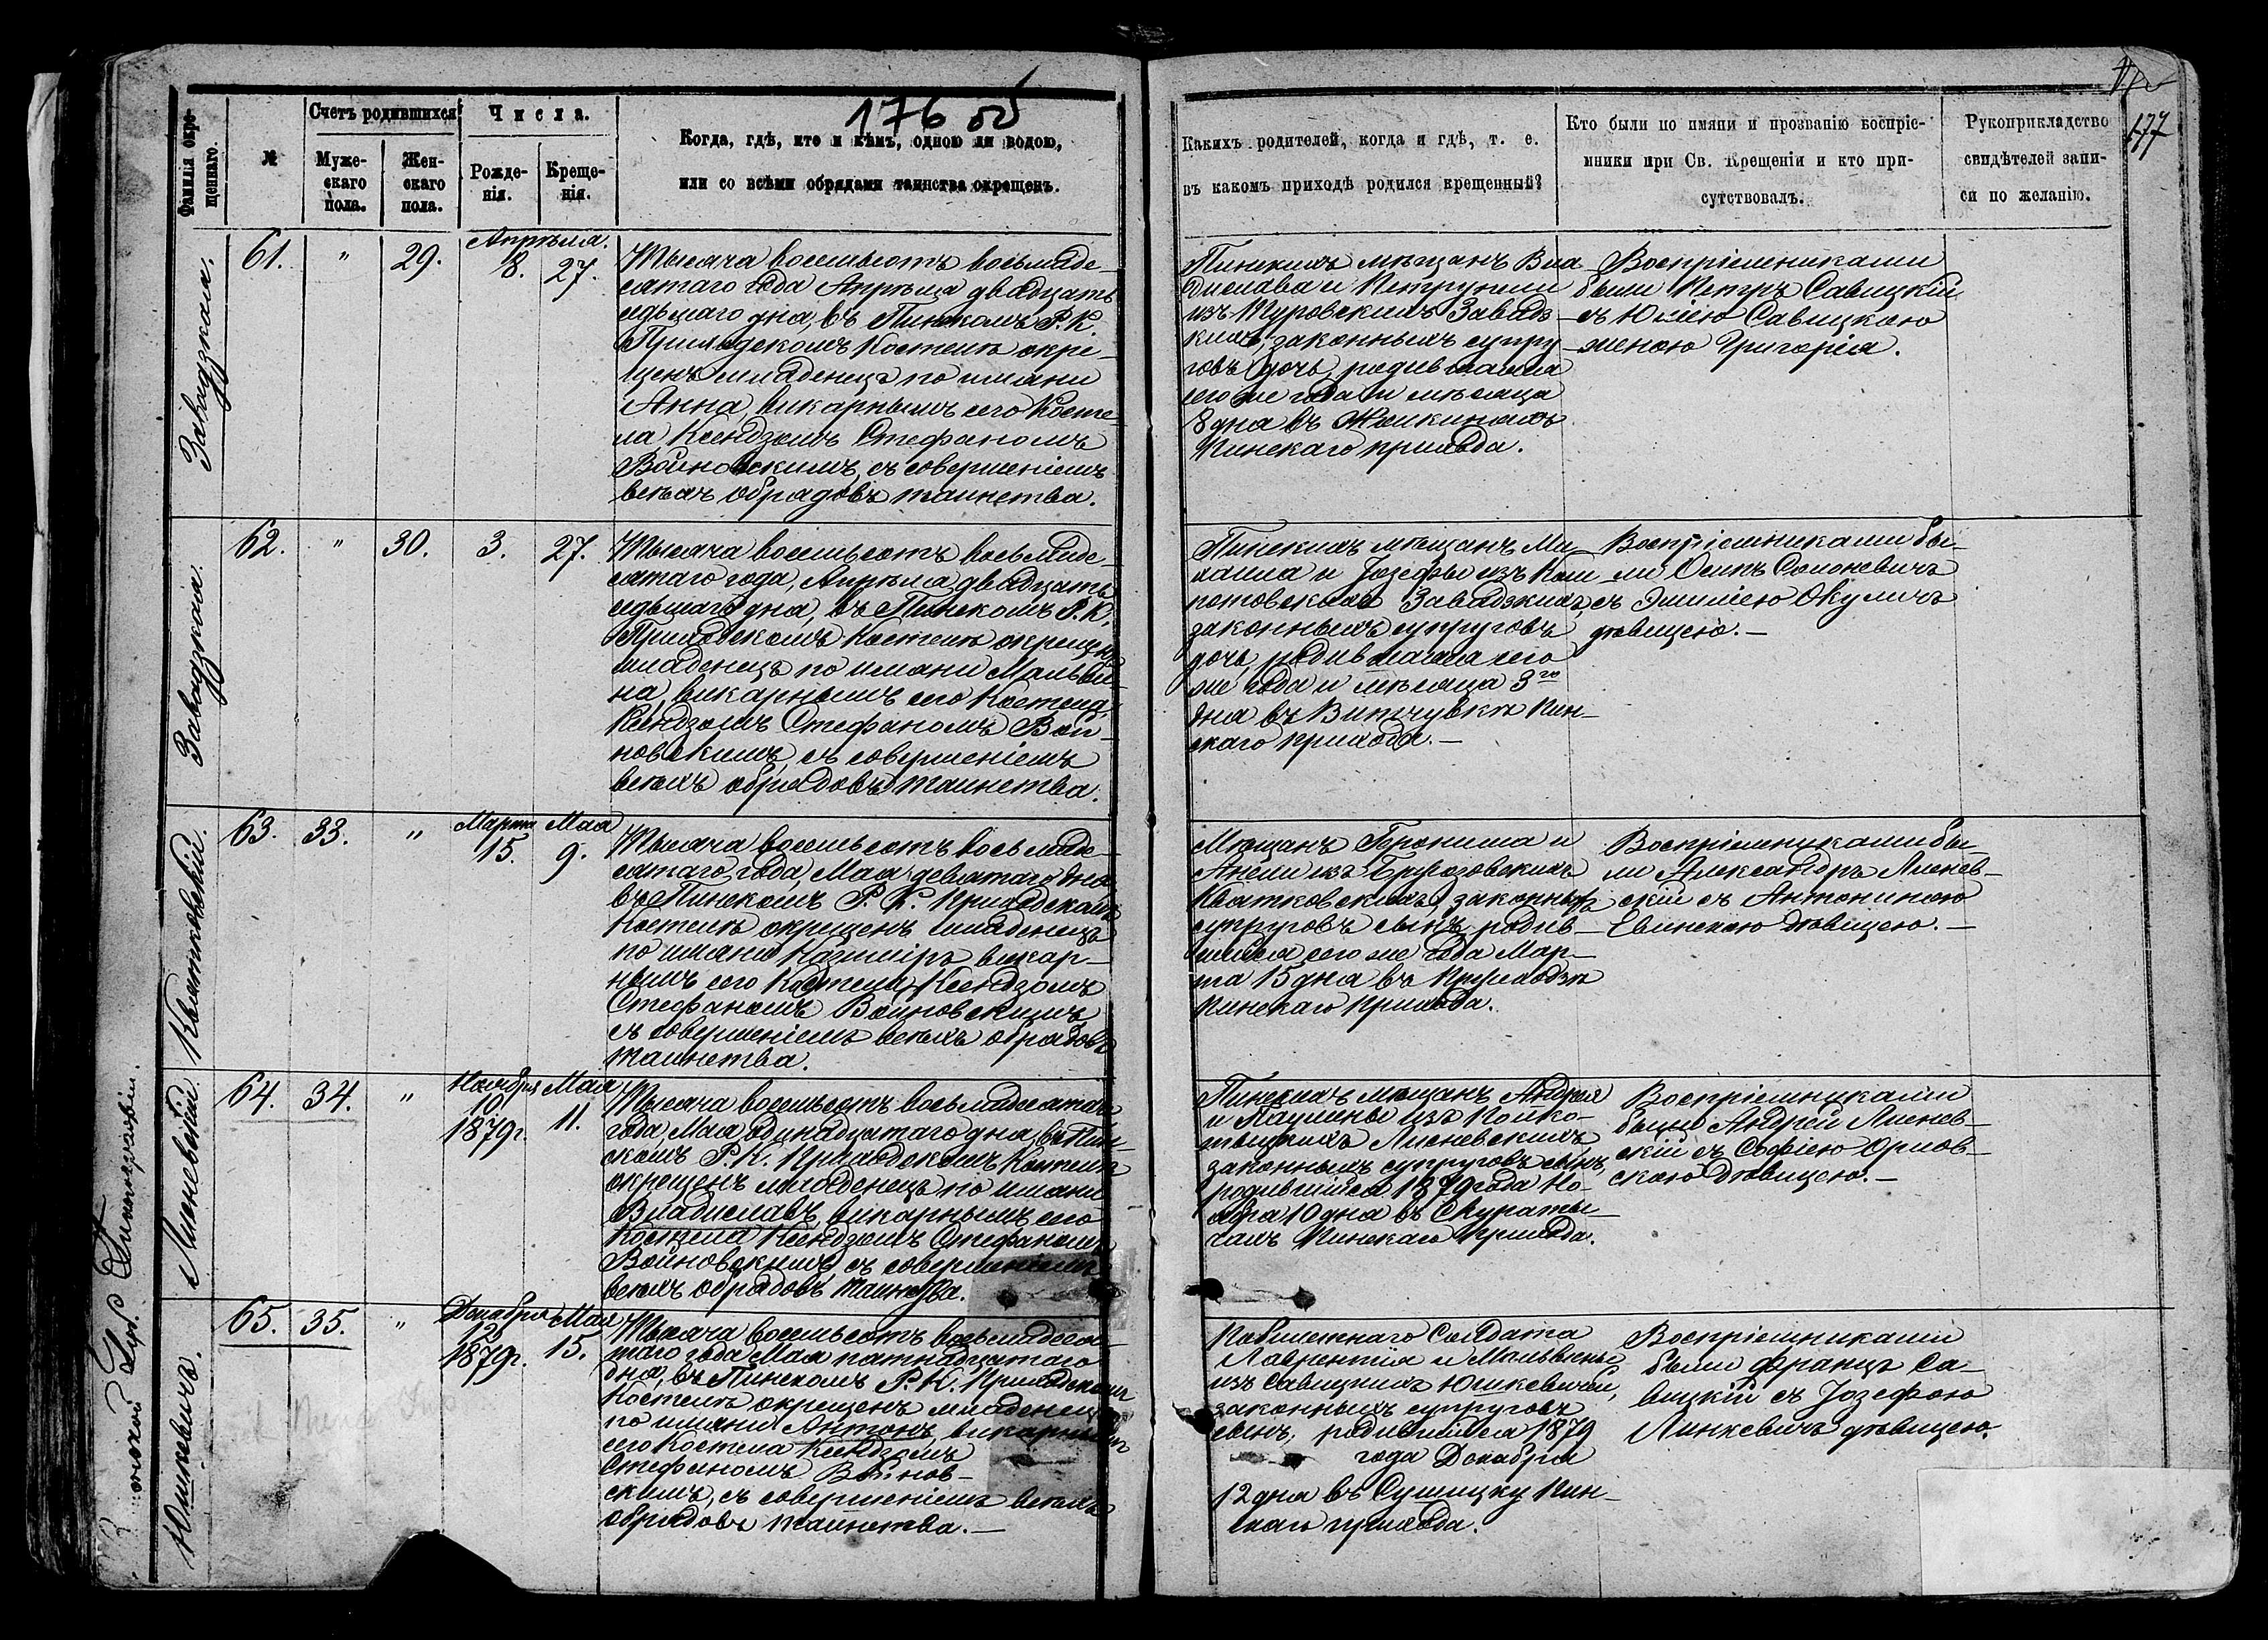 176 об
177
Фамилія окре-
щеннаго.
№
Счетъ родившихся
Муже-
скаго
пола.
Жен-
скаго
пола.
Числа.
Рожде-
нія.
Креще-
нія.
Когда, гдѣ, кто и кѣмъ, одною ли водою,
или со всѣми обрядами таинства окрещенъ.
Какихъ родителей, когда и гдѣ, т. е.
въ какомъ приходѣ родился крещенный?
Кто были по имяни и прозванію воспріе-
мники при Св. Крещеніи и кто при-
сутствовалъ.
Рукоприкладство
свидѣтелей запи-
си по желанію.
Завадзкая.
61.
"
29.
Апрѣля.
8. 27.
Тысяча восемьсотъ восьмиде-
сятаго года Апрѣля двадцать
седьмаго дня, въ Пинскомъ Р. К.
Приходскомъ Костелѣ окре-
щенъ младенецъ по имяни
Анна, викарнымъ сего Косте-
ла Ксендзомъ Стефаномъ
Войновскимъ, съ совершеніемъ
всѣхъ обрядовъ таинства.
Пинскихъ мѣщанъ Вла-
дислава и Петрунели
изъ Туровскихъ Завадз-
кихъ, законныхъ супру-
говъ дочь, родившаяся
сего же года и мѣсяца
8 дня въ
Пинскаго прихода.
Воспріемниками
были Петръ Савицкій
съ Юліею Савицкою
женою Григорія.
Завадзкая.
62.
"
30.
3.
27.
Тысяча восемьсотъ восьмиде-
сятаго года, Апрѣля двадцать
седьмаго дня, въ Пинскомъ Р. К.
Приходскомъ Костелѣ окрещенъ
младенецъ по имяни Мальви-
на, викарнымъ сего Костела
Ксендзомъ Стефаномъ Вой-
новскимъ, съ совершеніемъ
всѣхъ обрядовъ таинства.
Пинскихъ мѣщанъ Ми-
хаила и Іозефы изъ Кол-
потовскихъ Завадзкихъ,
законныхъ супруговъ
дочь, родившаяся сего
же года и мѣсяца 3го
дня въ Витчувкѣ Пин-
скаго прихода.—
Воспріемниками бы-
ли Осипъ Солоневичъ
съ Эмиліею Окуличъ
дѣвицею.—
Квятковскій.
63.
33.
"
Марта
15.
Мая
9.
Тысяча восемьсотъ восьмиде-
сятаго года, Мая девятаго дня
въ Пинскомъ Р. К. Приходскомъ
Костелѣ окрещенъ младенецъ
по имяни Казиміръ викар-
нымъ сего Костела Ксендзомъ
Стефаномъ Войновскимъ
съ совершеніемъ всѣхъ обрядовъ
таинства.
Мѣщанъ и
изъ
Квятковскихъ законныхъ
супруговъ сынъ, родив-
шійся сего же года Мар-
та 15 дня въ
Пинскаго прихода.
Воспріемниками бы-
ли Александръ Лиснев-
скій съ Антониною
Евинскою дѣвицею.—
Лисневскій.
64.
34.
"
Ноября
10
1879г.
Мая
11.
Тысяча восемьсотъ восьмидесятаго
года, Мая одинадцатаго дня, въ Пин-
скомъ Р. К. Приходскомъ Костелѣ
окрещенъ младенецъ по имяни
Владиславъ, викарнымъ сего
Костела Ксендзомъ Стефаномъ
Войновскимъ съ совершеніемъ
всѣхъ обрядовъ таинства.
Пинскихъ мѣщанъ Андрея
и Паулины изъ
Лисневскихъ
законныхъ супруговъ сынъ,
родившійся 1879 года Но-
ября 10 дня въ Скураты-
чахъ Пинскаго прихода.
Воспріемниками
были Андрей Лиснев-
скій съ Софіею Орлов-
скою дѣвицею.—
Юшкевичъ.
65.
35.
"
Декабря
12
1879г.
Мая
15.
Тысяча восемьсотъ восьмидеся-
таго года Мая пятнадцатаго
дня, въ Пинскомъ Р. К. Приходскомъ
Костелѣ окрещенъ младенецъ
по имяни Антонъ, викарнымъ
сего Костела Ксендзомъ
Стефаномъ Войнов-
скимъ, съ совершеніемъ всѣхъ
обрядовъ таинства.—
Солдата
Лаврентія и Мальвины
изъ Савицкихъ Юшкевичей,
законныхъ супруговъ
сынъ, родившійся 1879
года Декабря
12 дня въ Сушицку Пин-
скаго прихода.
Воспріемниками
были Францъ Са-
вицкій съ Іозефою
Линкевичъ дѣвицею.
Губ. Типографіи.